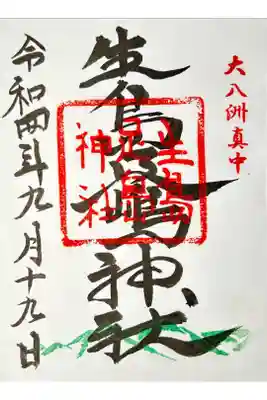 大八洲真中
生島足嶋神社
生島
足島
神社
令和四年九月十九日